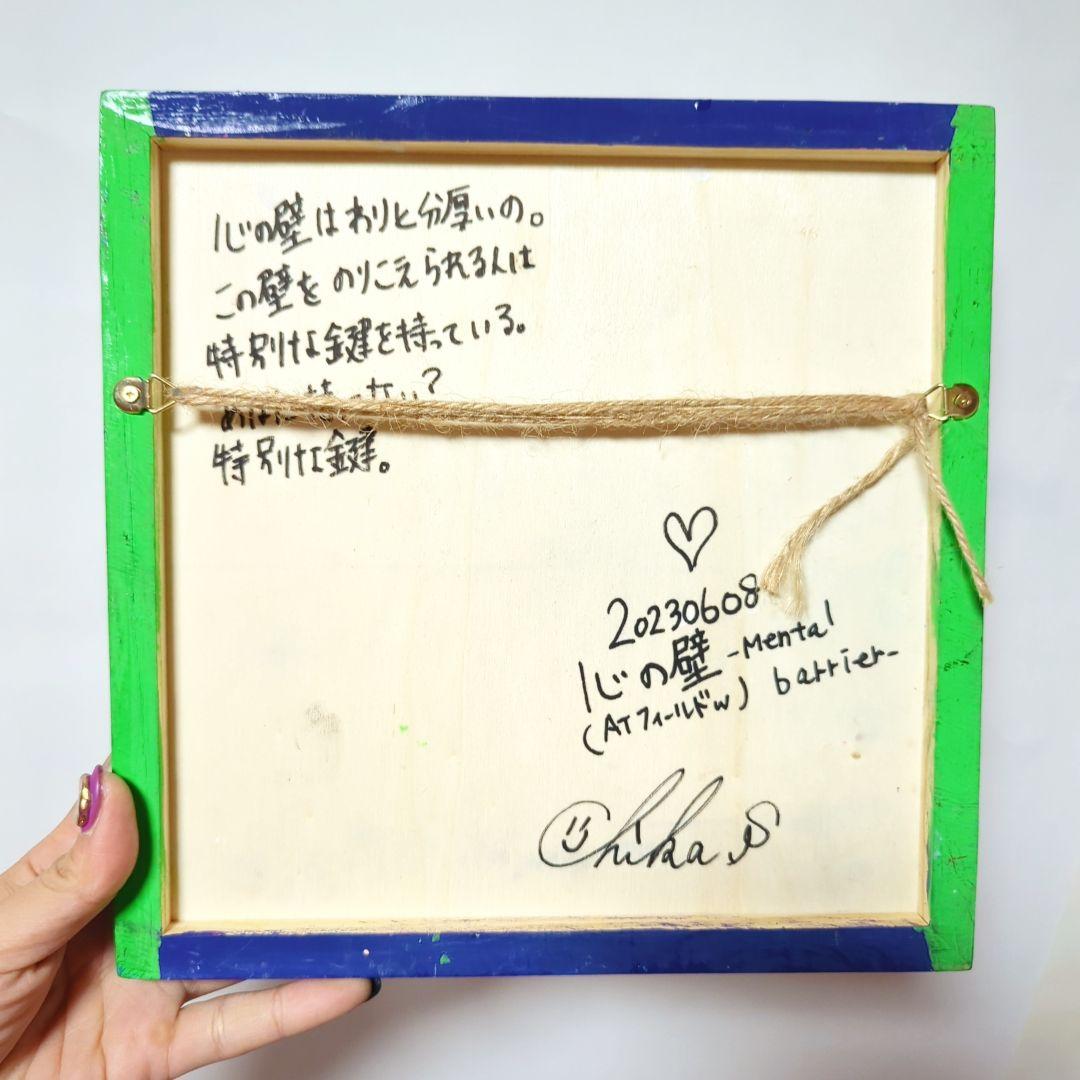 心の壁はわりと分厚いの。
この壁をのりこえられる人は
特別な鍵を持っている。
特別な鍵。
20230608
心の壁 -Mental
barrier-
(ATフィールドw)
Chika.S